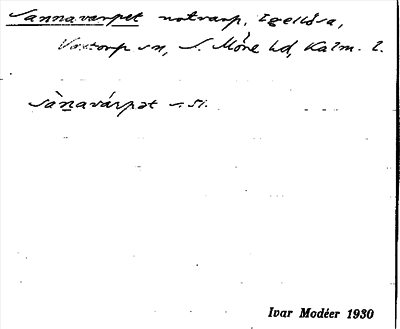 Sannavarpet notvarp, Igelösa,
Voxtorp sn, S. Möre hd, Kalm. l.
sànavárpət s. st.
Ivar Modéer 1930